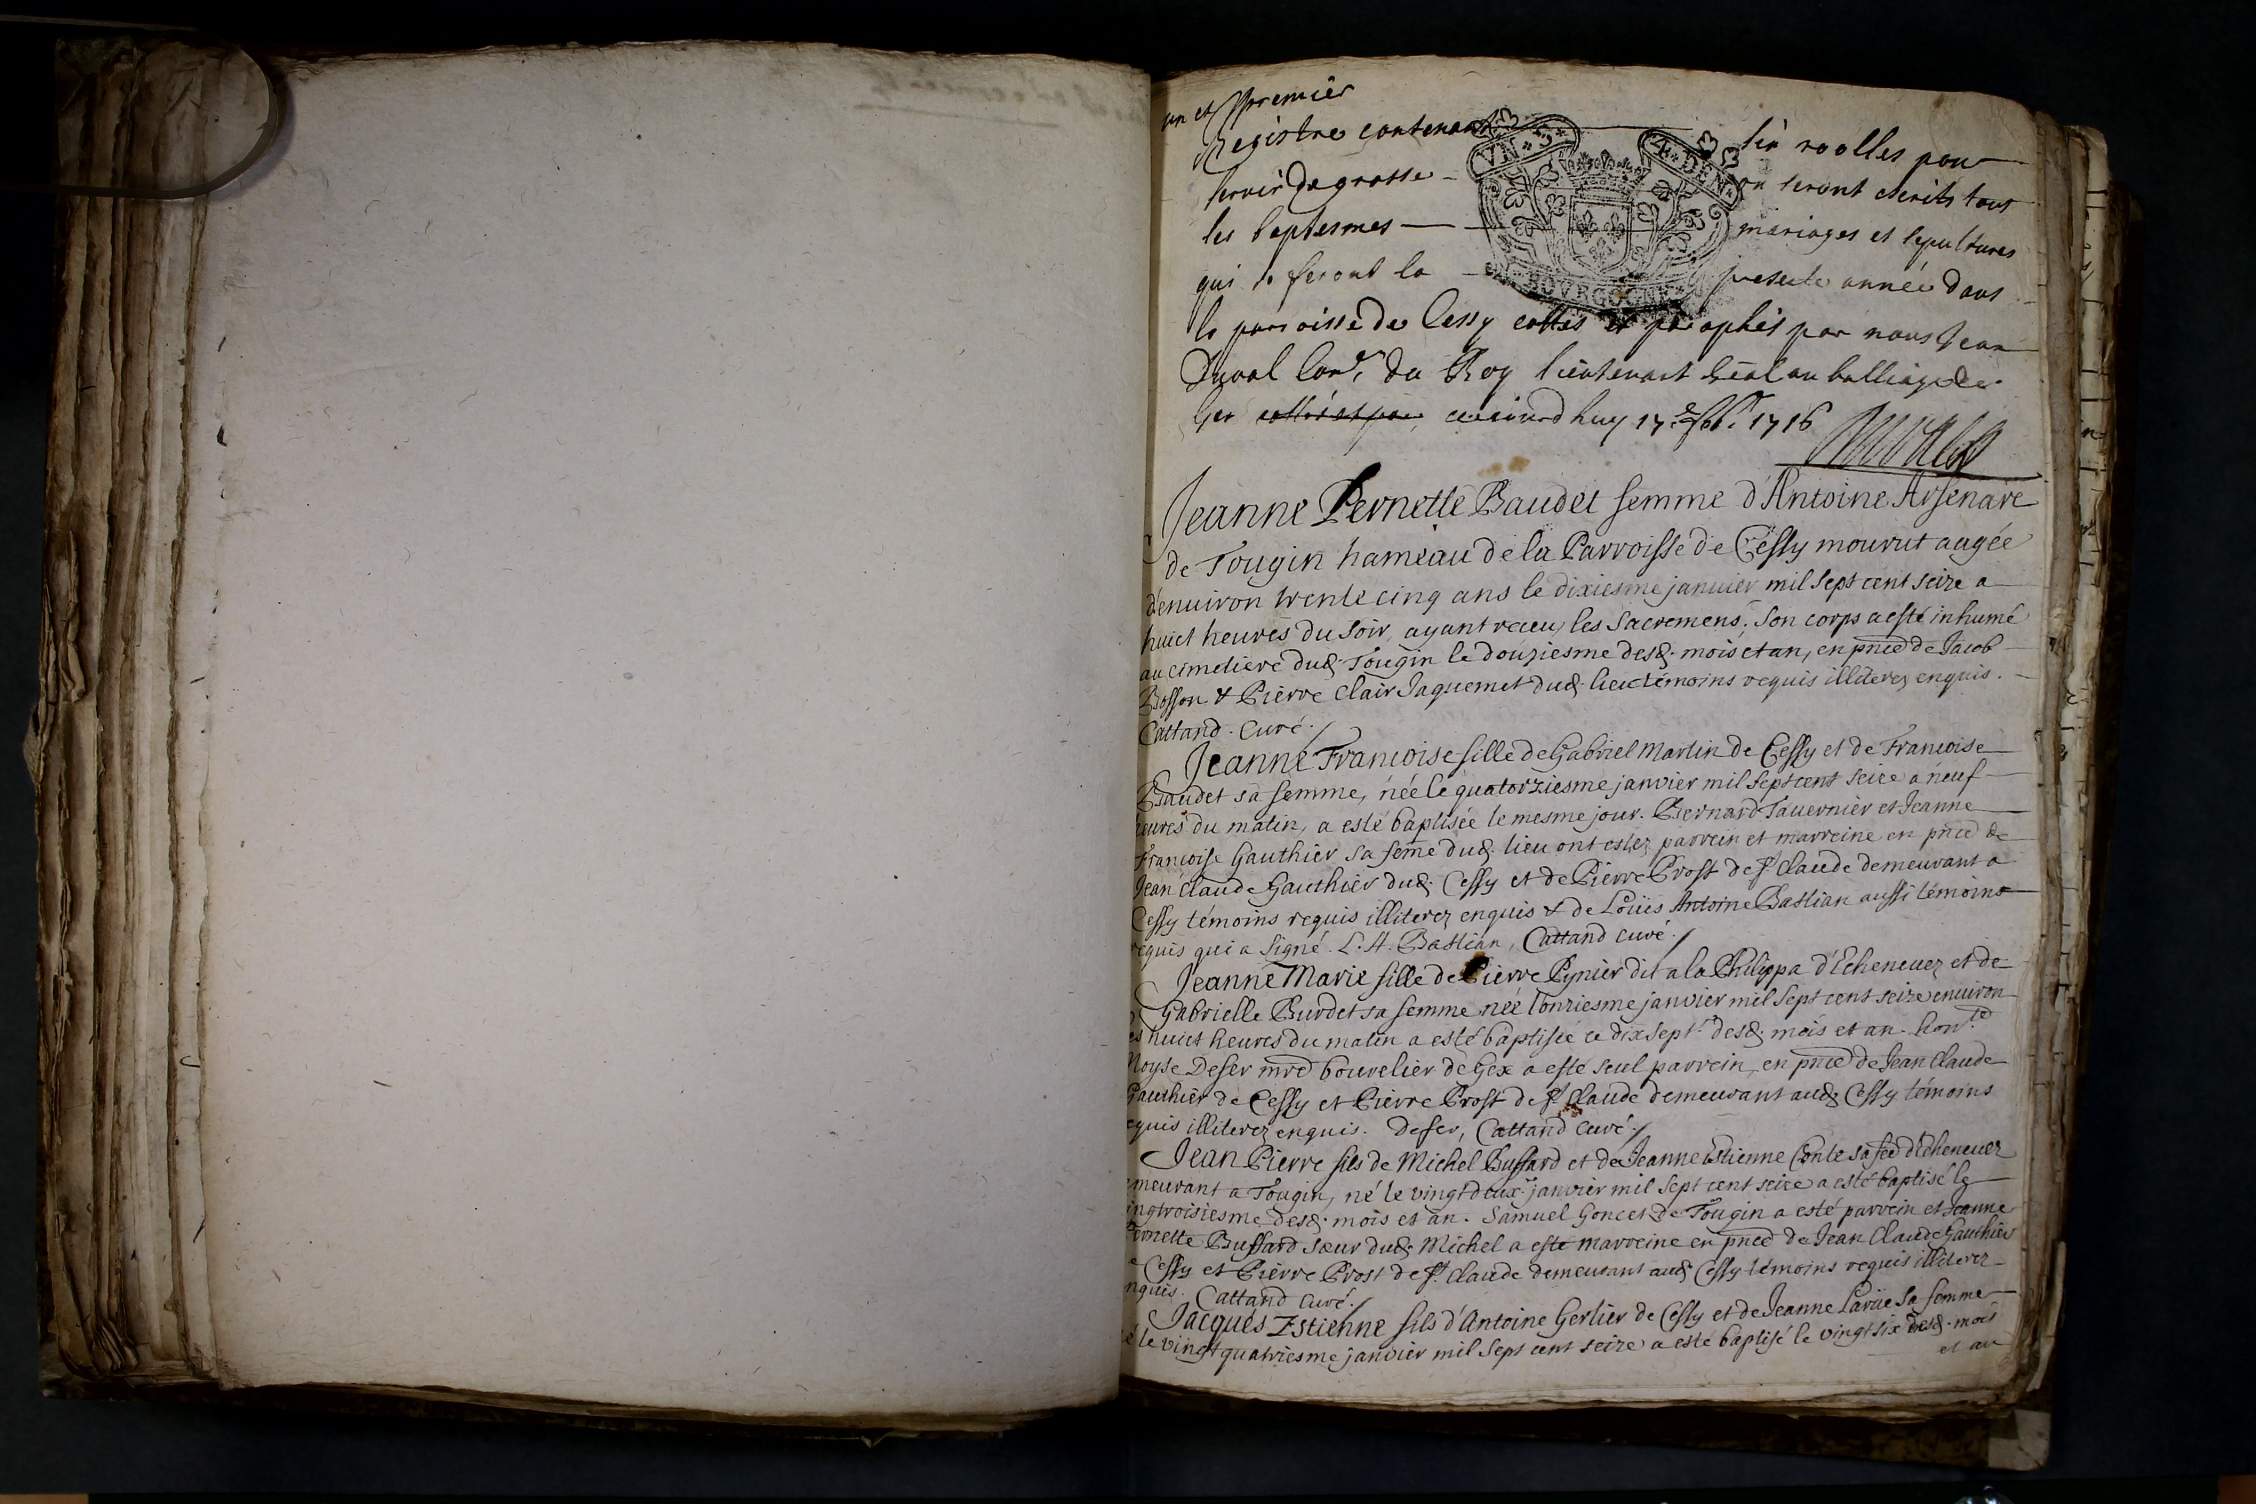 un et premier
Registre contenant six roolles pour
servir de grosse ou seront escrits tous
les baptesmes mariages et sepultures
qui se feront la presente année dans
VN·S· 4·DEN·
BOVRGOGNE
la parroisse de Cessy cottés et paraphés par nous Jean
Duval Con.r du Roy lieutenant gñal au balliage de
Gex cottés et par ce iourd huy 17.e 1716
Jeanne Pernette Baudet femme d'Antoine Arsenare
de Tougin hameau de la Parroisse de Cessy mourut aagée
d'enuiron trente cinq ans le dixiesme janvier mil sept cent seize a
huict heures du soir, ayant receu les Sacremens. Son corps a esté inhumé
au cimetiere dud. Tougin le douziesme desd. mois et an, en pñce de Jacob
Bosson & Pierre Clair Jaquemet dud. lieu témoins requis illiterez enquis.
Cattand. Curé.
Jeanne Francoise fille de Gabriel Martin de Cessy et de Francoise
Baudet sa femme, née le quatorziesme janvier mil sept cent seize a neuf
heures du matin, a esté baptisée le mesme jour. Bernard Tauernier et Jeanne
Francoise Gauthier sa feme dud. lieu ont estez parrein et marreine en pñce de
Jean Claude Gauthier dud. Cessy et de Pierre Prost de S.t Claude demeurant a
Cessy témoins requis illiterez enquis & de Loüis Antoine Bastian aussi témoins
requis qui a signé. L. A. Bastian, Cattand curé.
Jeanne Marie fille de Pierre Pynier dit a la Philippa d'Echeneuez et de
Gabrielle Burdet sa femme née l'onziesme janvier mil sept cent seize enuiron
es huict heures du matin a esté baptisée ce dix sept.e desd. mois et an. hon.ble
Moyse Defer mrd bourelier de Gex a esté seul parrein, en pñce de Jean Claude
Gauthier de Cessy et Pierre Prost de S.t Claude demeurant aud. Cessy témoins
equis illiterez enquis. Defer, Cattand curé.
Jean Pierre fils de Michel Buffard et de Jeanne Estienne Conte sa fee d'Echeneuez
emeurant a Tougin, né le vingt deux.e janvier mil sept cent seize a esté baptisé le
ingtroisiesme desd. mois et an. Samuel Goncet de Tougin a esté parrein et Jeanne
Pernette Buffard sœur dud. Michel a esté marreine en pñce de Jean Claude Gauthier
e Cessy et Pierre Prost de S.t Claude demeurant aud. Cessy témoins requis illiterez
nquis. Cattand curé.
Jacques Estienne fils d'Antoine Gerlier de Cessy et de Jeanne Larüe sa femme
é le vingt quatriesme janvier mil sept cent seize a esté baptisé le vingt six desd. mois
et an